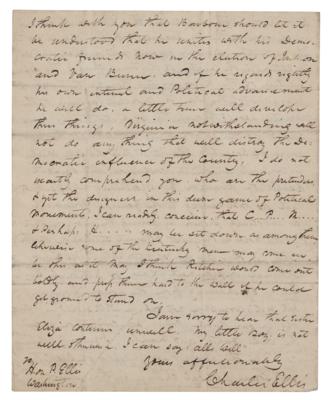 I think with you that Barbour should let it
be understood that he unites with his Demo-
cratic friends now in the election of
and Van Buren, and if he regards rightly
his own interest and Political advancement
he will do, a little time will develope
these things, Virginia notwithstanding will
not do any thing that will distroy the De-
mocratic influence of the Country, I do not
exactly comprehend you who are the pretenders
& yet the in this game of Political
movement, I can readily conceive that C. P. N.
& Perhaps may be set down as among them
some of the Kentucky men may come in,
be this as it may I think Ritchie would come out
boldly and push them hard to the wall if he could
get ground to stand on.
I am sorry to hear that Sister
Eliza continues unwell. My little Boy is not
well otherwise I can say all's well
Yours affectionately
Charles Ellis
To
Hon. P. Ellis
Washington